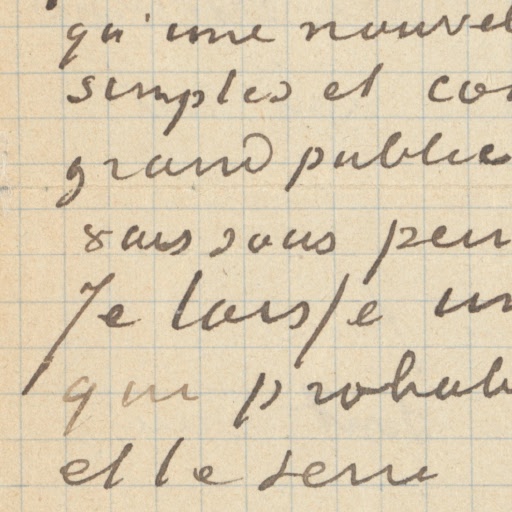 qu'une nouvel
simples et con
grand public
sous peu
Je laisse un
qui probab
et le